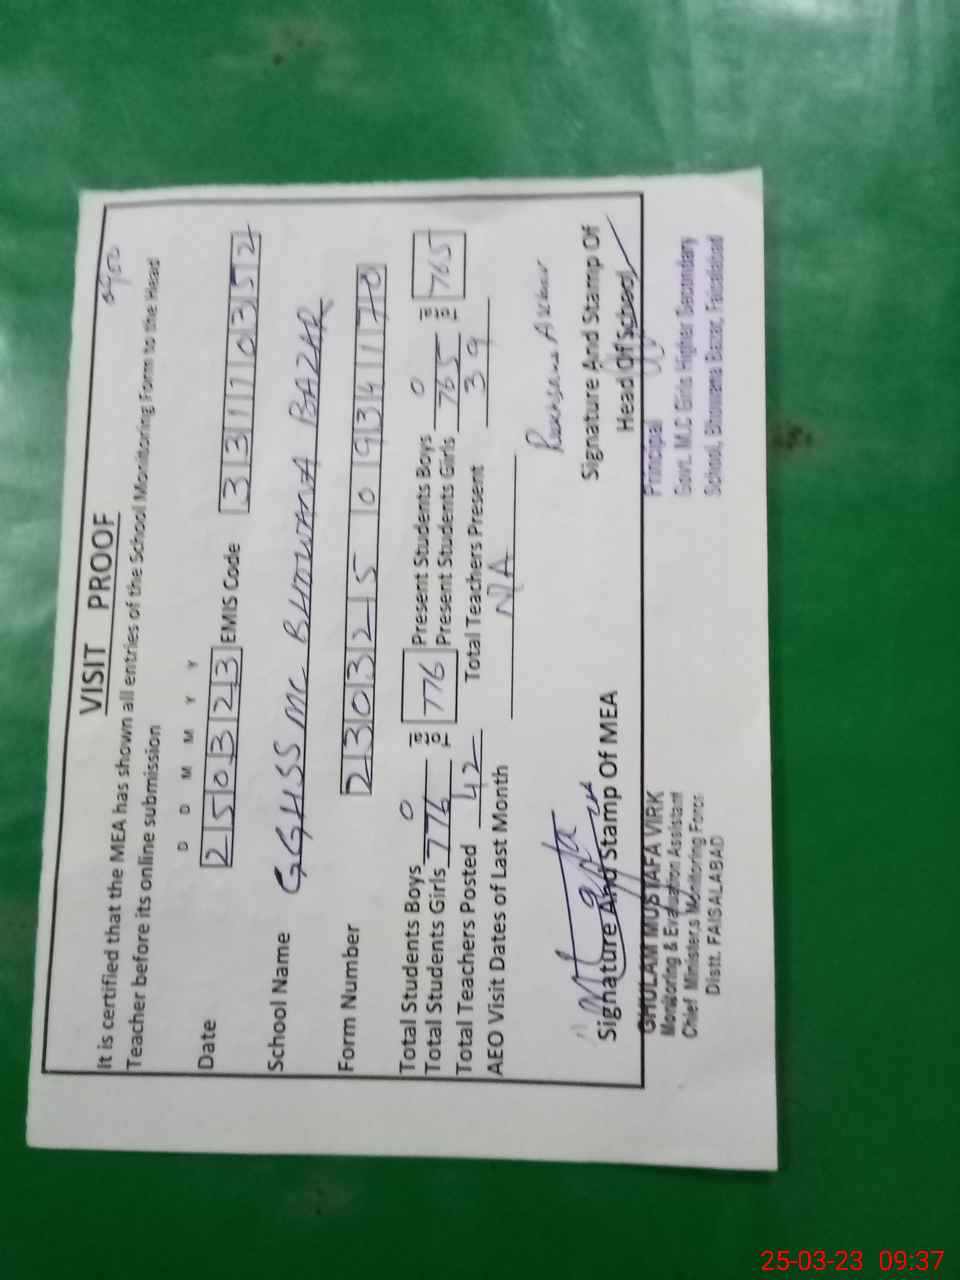 VISIT PROOF
0900
It is certified that the MEA has shown all entries of the School Monitoring Form to the Head
Teacher before its online submission
D D M M Y Y
Date 2 5 0 3 2 3 EMIS Code 3 3 1 1 0 3 5 2
School Name GGHSS MC BHOWANA BAZAR
Form Number 2 3 0 3 2 5 0 9 3 4 1 7 0
Total Students Boys 0 Total 776 Present Students Boys 0 Total 765
Total Students Girls 776 Present Students Girls 765
Total Teachers Posted 42 Total Teachers Present 39
AEO Visit Dates of Last Month N/A
Signature And Stamp Of MEA
Signature And Stamp Of
Head Of School
GHULAM MUSTAFA VIRK
Monitoring & Evaluation Assistant
Chief Minister,s Monitoring Force
Distt. FAISALABAD
Principal
Govt. M.C Girls Higher Secondary
School, Bhowana Bazar, Faisalabad
25-03-23 09:37